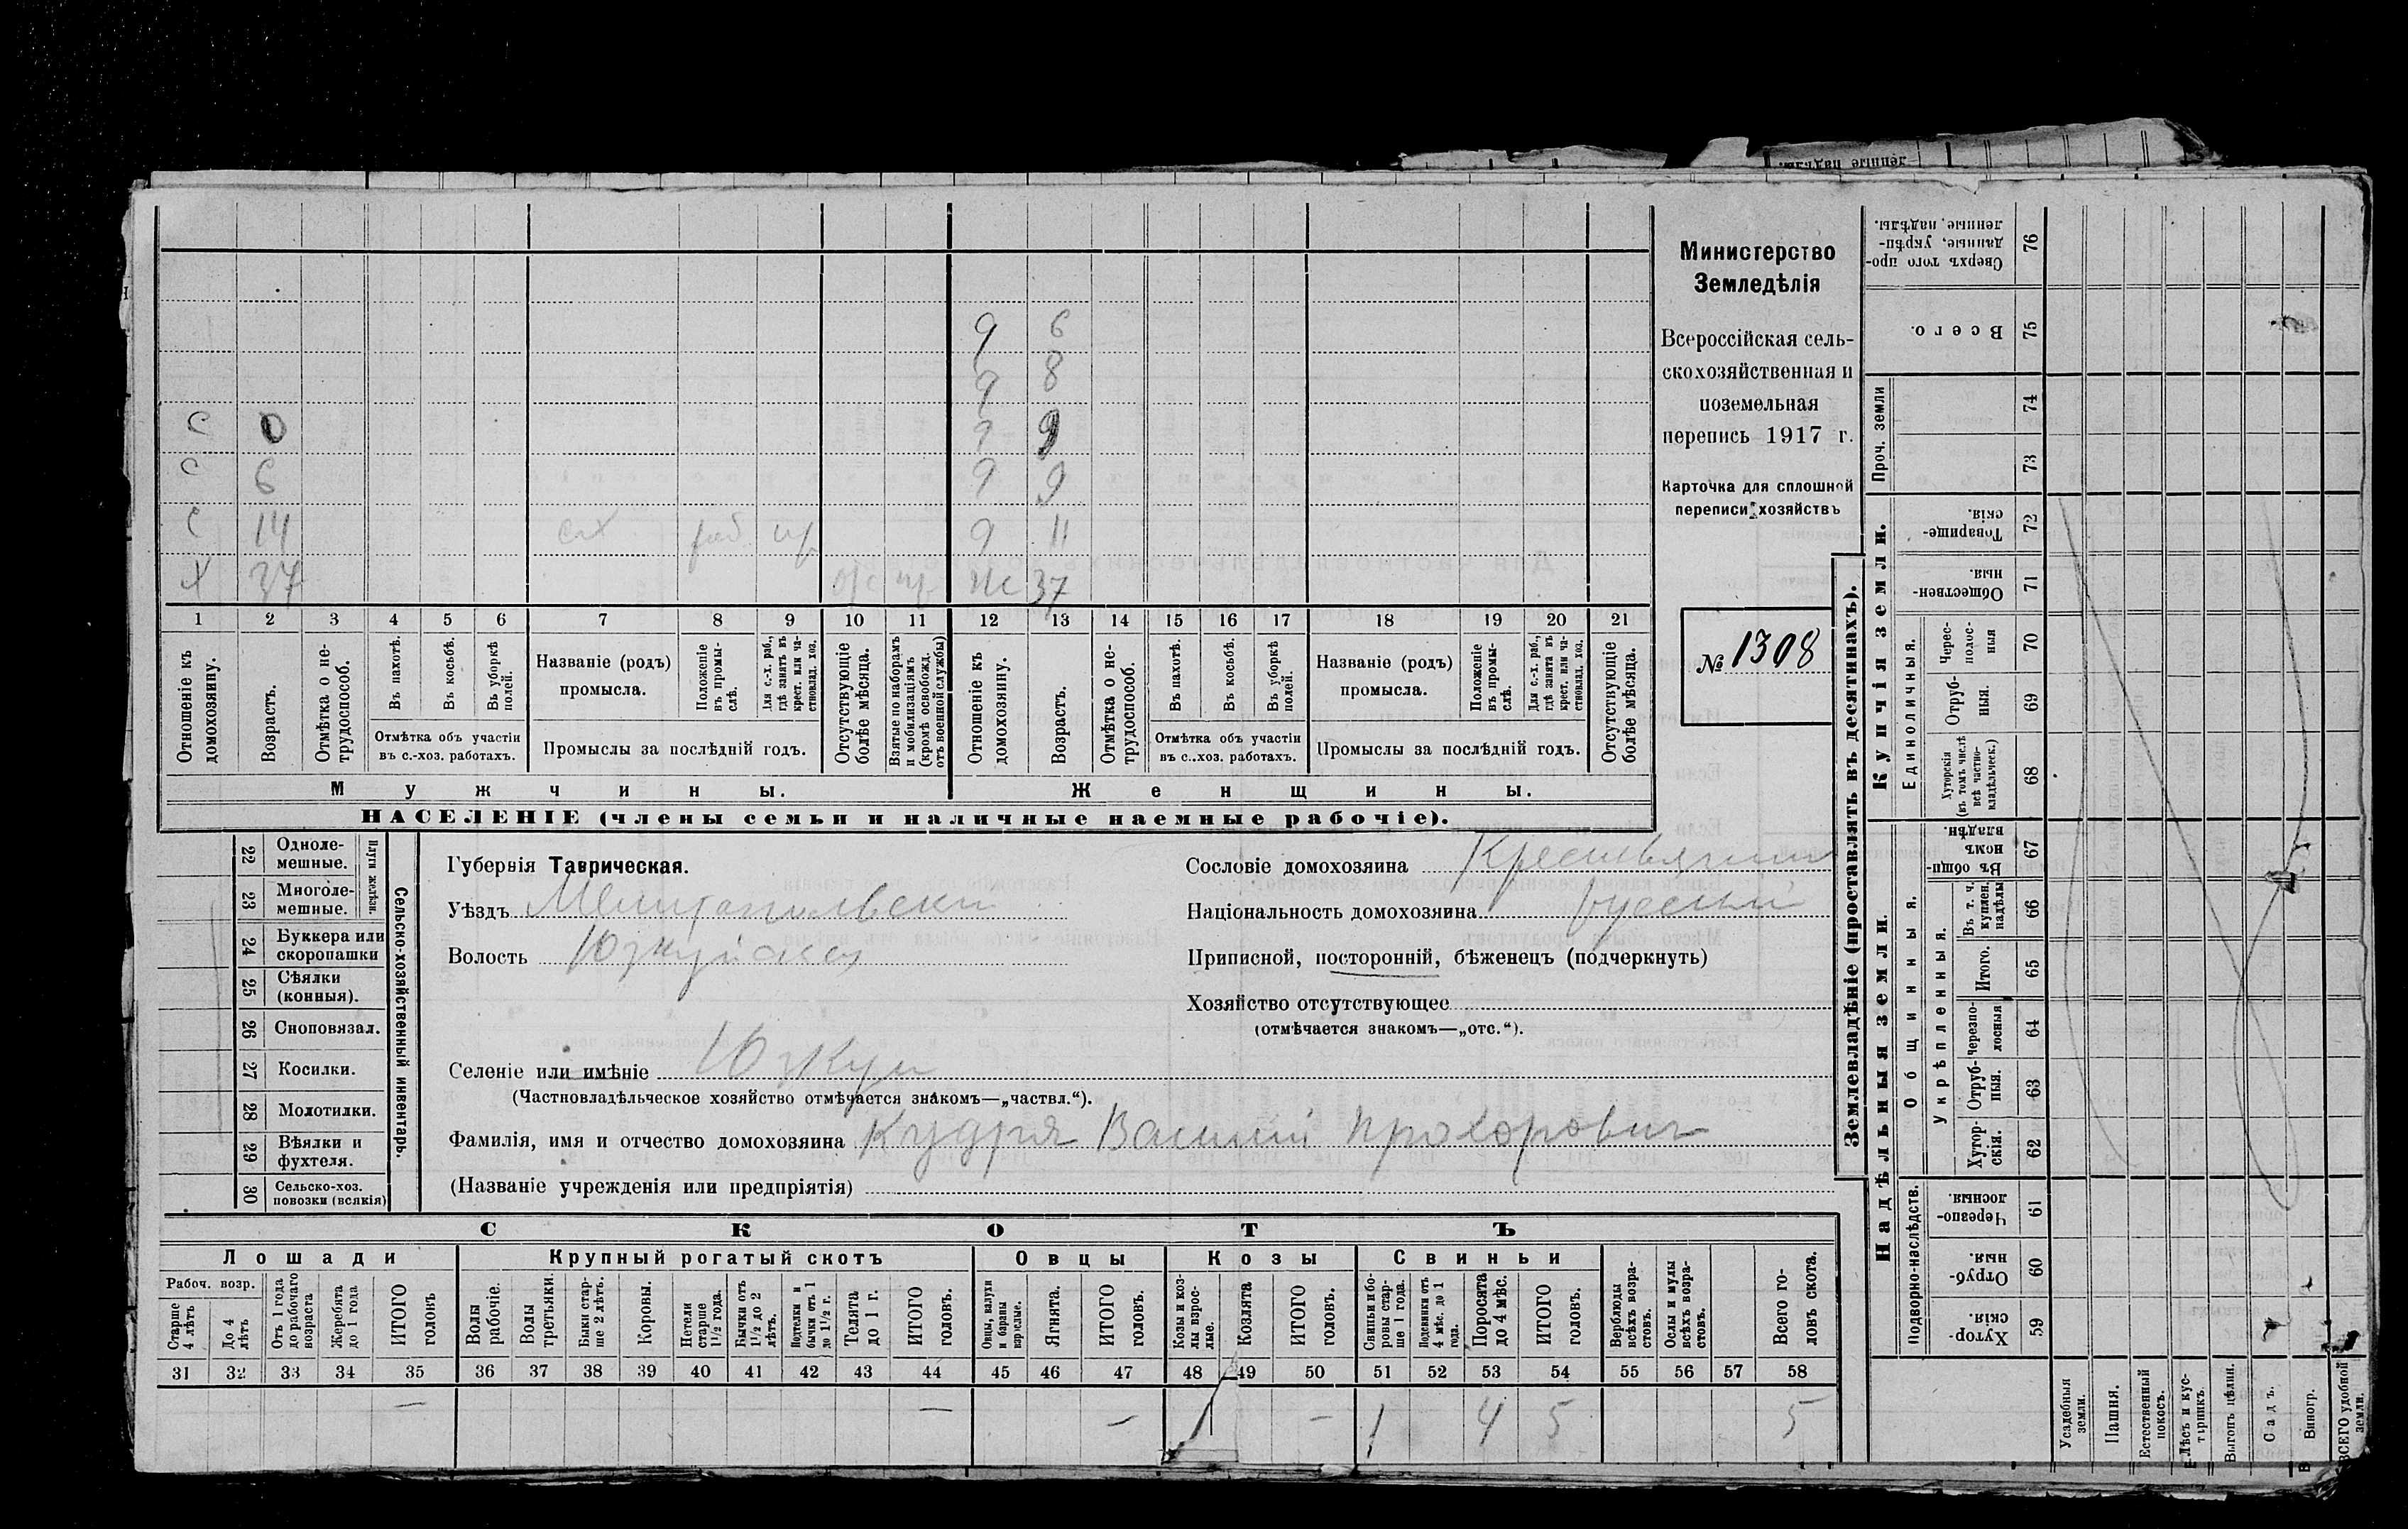 ленные надѣлы.
Министерство
Земледѣлія
Всероссійская сель-
скохозяйственная и
поземельная
перепись 1917 г.
Карточка для сплошной
переписи хозяйствъ
№ 1308
9 6
9 8
С 0 9 9
С 6 9 9
С 14 сх раб 9 11
Х 37 Ж 37
1 2 3 4 5 6 7 8 9 10 11 12 13 14 15 16 17 18 19 20 21
Отношеніе къ домохозяину.
Возрастъ.
Отмѣтка о не-трудоспособ.
Въ пахотѣ.
Въ косьбѣ.
Въ уборкѣ полей.
Отмѣтка объ участіи
въ с.-хоз. работахъ.
Названіе (родъ)
промысла.
Положеніе въ промы-слѣ.
Для с.-х. раб., гдѣ занятъ въ крест. или ча-стновлад. хоз.
Промыслы за послѣдній годъ.
Отсутствующіе болѣе мѣсяца.
Взятые по наборамъ и мобилизаціямъ (кромѣ освобожд. отъ военной службы)
Отношеніе къ домохозяину.
Возрастъ.
Отмѣтка о не-трудоспособ.
Въ пахотѣ.
Въ косьбѣ.
Въ уборкѣ полей.
Отмѣтка объ участіи
въ с.-хоз. работахъ.
Названіе (родъ)
промысла.
Положеніе въ промы-слѣ.
Для с.-х. раб., гдѣ занята въ крест. или ча-стновлад. хоз.
Промыслы за послѣдній годъ.
Отсутствующіе болѣе мѣсяца.
Мужчины. Женщины.
НАСЕЛЕНІЕ (члены семьи и наличные наемные рабочіе).
Сельско-хозяйственный инвентарь.
Плуги желѣзн.
22 Одноле-мешные.
23 Многоле-мешные.
24 Буккера или скоропашки
25 Сѣялки (конныя).
26 Сноповязал.
27 Косилки.
28 Молотилки.
29 Вѣялки и фухтеля.
30 Сельско-хоз. повозки (всякія)
Губернія Таврическая.
Уѣздъ Мелитопольски
Волость Юзкуйская
Селеніе или имѣніе Юзкуи
(Частновладѣльческое хозяйство отмѣчается знакомъ—„частвл.“).
Фамилія, имя и отчество домохозяина Кудря Василий Прохорович
(Названіе учрежденія или предпріятія)
Сословіе домохозяина Крестьянин
Національность домохозяина русский
Приписной, посторонній, бѣженецъ (подчеркнуть)
Хозяйство отсутствующее
(отмѣчается знакомъ—„отс.“).
СКОТЪ
Лошади Крупный рогатый скотъ Овцы Козы Свиньи
Рабоч. возр.
Старше 4 лѣтъ
До 4 лѣтъ
Отъ 1 года до рабочаго возраста
Жеребята до 1 года
ИТОГО головъ
Волы рабочіе.
Волы третьяки.
Быки стар-ше 2 лѣтъ.
Коровы.
Нетели старше 1½ года.
Бычки отъ 1½ до 2 лѣтъ.
Подтелки и бычки отъ 1 до 1½ г.
Телята до 1 г.
ИТОГО головъ.
Овцы, валухи и бараны взрослые.
Ягнята.
ИТОГО головъ.
Козы и коз-лы взрос-лые.
Козлята
ИТОГО головъ.
Свиньи и бо-ровы стар-ше 1 года.
Подсвинки отъ 4 мѣс. до 1 года.
Поросята до 4 мѣс.
ИТОГО головъ.
Верблюды всѣхъ возра-стовъ.
Ослы и мулы всѣхъ возра-стовъ.
Всего го-ловъ скота.
31 32 33 34 35 36 37 38 39 40 41 42 43 44 45 46 47 48 49 50 51 52 53 54 55 56 57 58
— — — — 1 4 5 5
Землевладѣніе (проставлять въ десятинахъ).
Сверхъ того про-данные, укрѣп-ленные надѣлы. 76
Всего. 75
Проч. земли
74
73
Купчія земли.
Товарище-скія. 72
Обществен-ныя. 71
Единоличныя.
Черес-полос-ныя 70
Отруб-ныя. 69
Хуторскія (въ томъ числѣ всѣ частно-владѣльческ.) 68
Надѣльныя земли.
Общинныя.
Въ общи-номъ владѣн. 67
Укрѣпленныя.
Въ т. ч. куплен. надѣлы 66
Итого. 65
Черезпо-лосныя 64
Отруб-ныя. 63
Хутор-скія. 62
Подворно-наслѣдств.
Черезпо-лосныя. 61
Отруб-ныя. 60
Хутор-скія. 59
Усадебныя земли.
Пашня.
Естественный покосъ.
Лѣсъ и кус-тарникъ.
Выгонъ цѣлин.
Садъ.
Виногр.
ВСЕГО удобной земли.